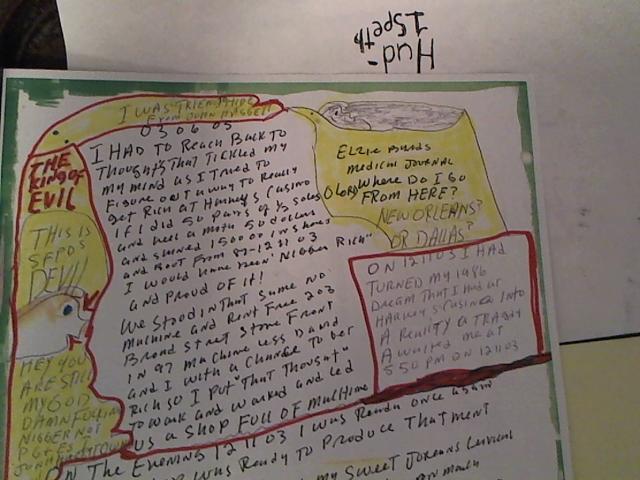 Hud-
1 Speth
I WAS
FROM JOHN
03 06 05
THE
KING OF
EVIL
THIS IS
SEPDS
DEVIL
HEY YOU
ARE STILL
MY GOD
DAMN FUCKING
NIGGER NOT
I HAD TO REACH BACK TO
Thoughts That TICKLED MY
MY MIND AS I TRIED TO
Figure out a way to Really
Get Rich at Harvey's Casino
IF I did 50 Pairs of 1/2 Soles
and heel a moth 50 dollars
and shined 1500.00 in shoes
and Boot From 87-12 11 03
I would have been "Nigger Rich"
and PROUD OF IT!
We Stood in that Same No
Machine and Rent Free 203
Broad Street Store Front
In 97 Machine less David
and I with a Change to Get
Rich so I put that Thought
To Work and Worked and Led
us a SHOP FULL OF MACHINE
ELZIE
MEDICAL JOURNAL
O Lord Where DO I GO
FROM HERE?
NEW ORLEANS?
OR DALLAS?
ON 12 11 03 I HAD
TURNED MY 1986
DREAM THAT I HAD AT
HARVEY'S CASINO INTO
A REALITY A TRAGDY
A WAITED ME AT
5 50 PM ON 12 11 03
ON THE EVENING 12 11 03 I WAS READY ONCE again
WAS READY TO PRODUCE THAT MENT
MY SWEET